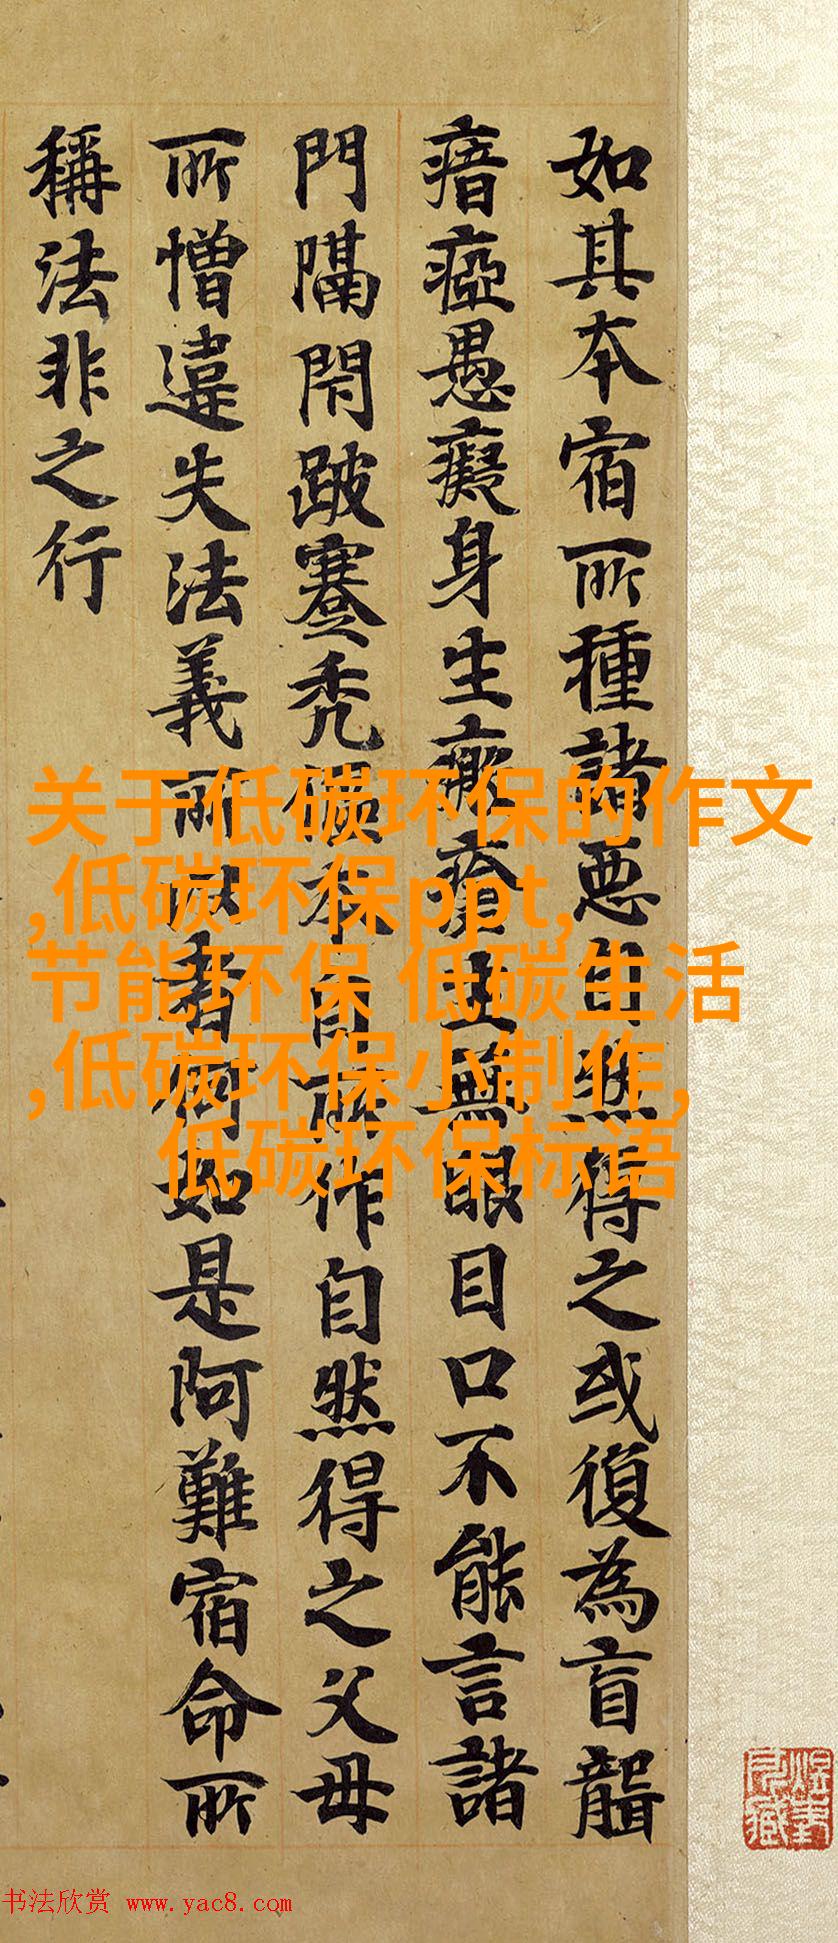 如其本宿所種諸悪自然得之或復為盲聾
瘖瘂愚癡身生瘡並無眼目口不能言諸
門隔閇跛蹇秃僂本自所作自然得之父母
所憎違失法義所以者何如是阿難宿命所
稱法非之行
关于低碳环保的作文
,低碳环保ppt,
节能环保 低碳生活
,低碳环保小制作,
低碳环保标语
书法欣赏 www.yac8.com